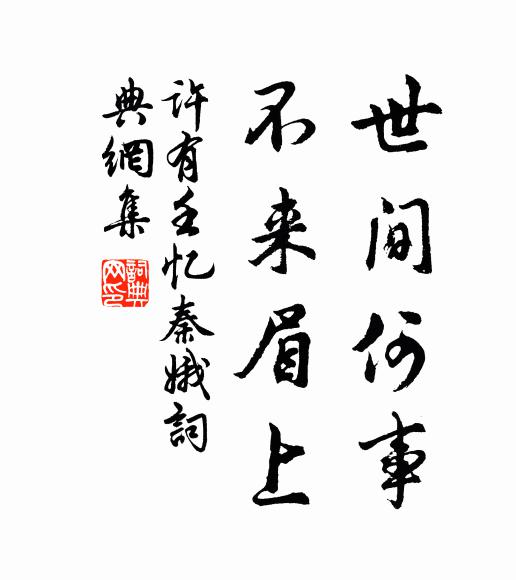 世间何事
不来眉上
许有壬忆秦娥詞
典網集
詞典
网印